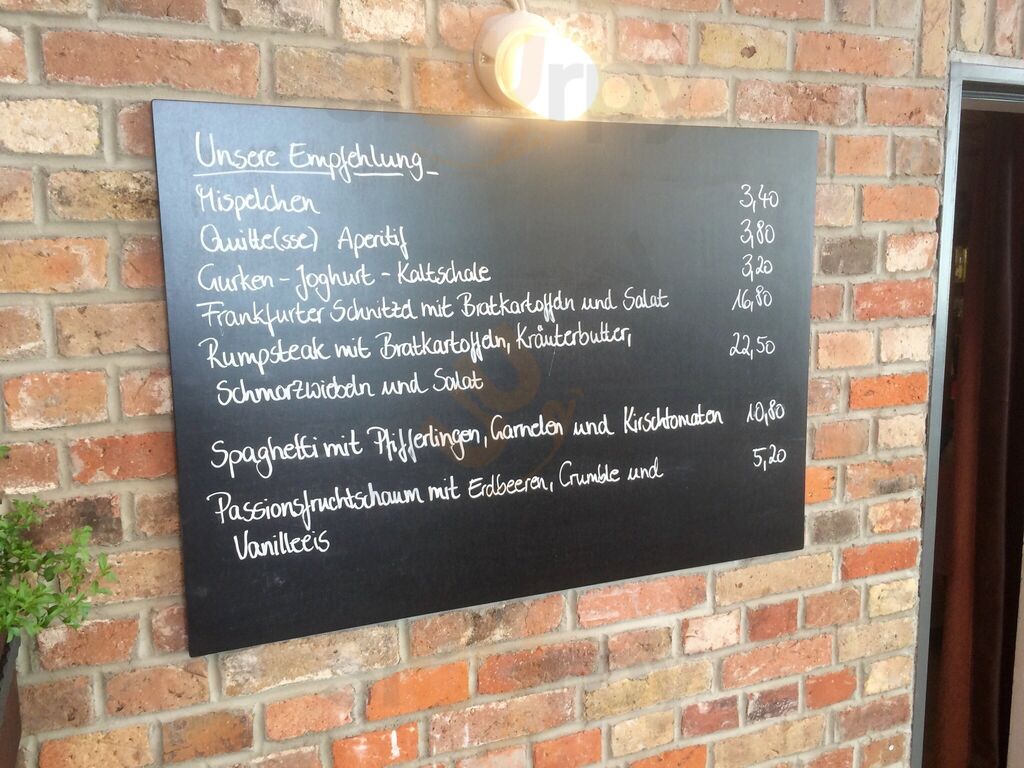 Unsere Empfehlung
Mispelchen 3,40
Quitte(sse) Aperitif 3,80
Gurken-Joghurt-Kaltschale 3,20
Frankfurter Schnitzel mit Bratkartoffeln und Salat 16,80
Rumpsteak mit Bratkartoffeln, Kräuterbutter, 22,50
Schmorzwiebeln und Salat
Spaghetti mit Pfifferlingen, Garnelen und Kirschtomaten 10,80
Passionsfruchtschaum mit Erdbeeren, Crumble und 5,20
Vanilleeis